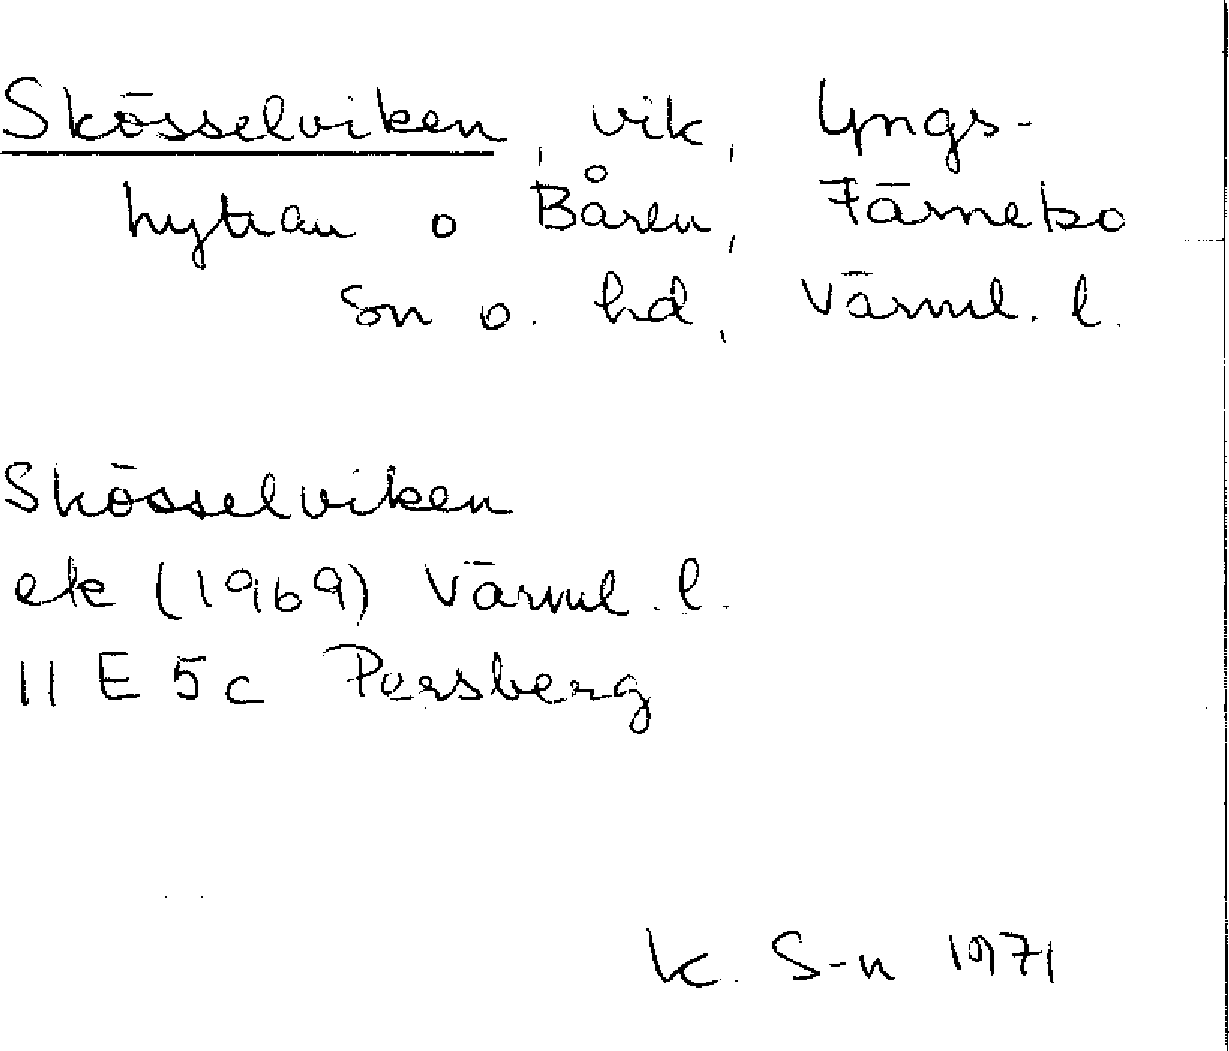 Skösselviken, vik, Lyngs-
hyttan o Båren, Färnebo
sn o. hd, Värml. l.
Skösselviken
ek (1969) Värml. l.
11 E 5c Persberg
K. S-n 1971